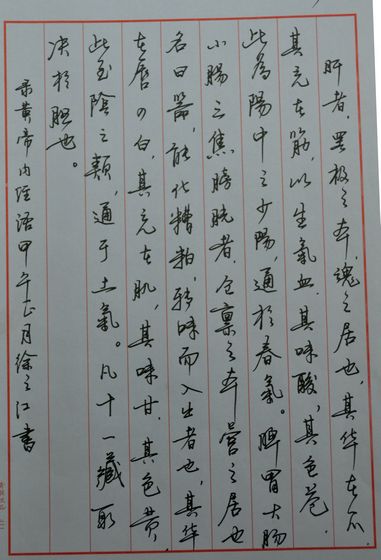 肝者，罢极之本，魂之居也，其华在爪
其充在筋，以生氣血，其味酸，其色蒼，
此為陽中之少陽，通於春氣。脾胃大腸
小腸三焦膀胱者，仓禀之本，營之居也
名曰器，能化糟粕，转味而入出者也，其华
在唇四白，其充在肌，其味甘，其色黄，
此至陰之類，通于土氣。凡十一藏取
决於胆也。
录黄帝内经语甲午正月徐之江書